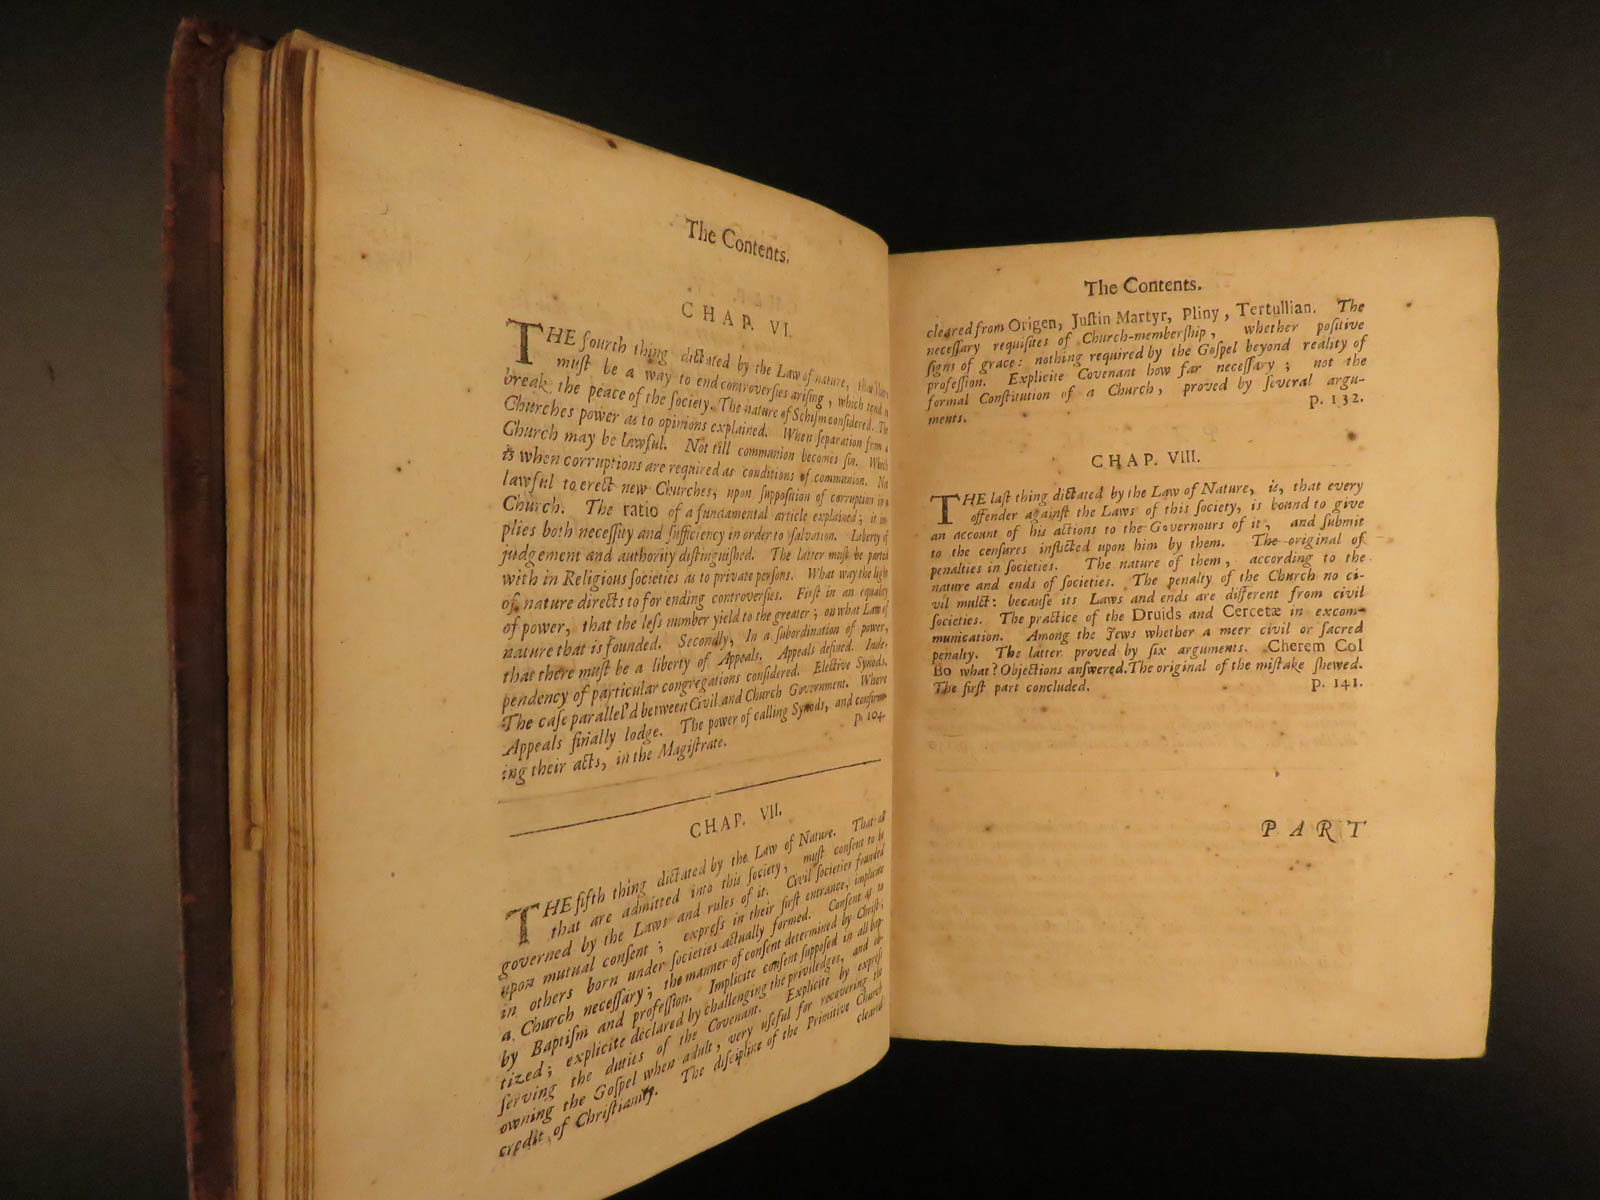 The Contents.
CHAP. VI.
THE fourth thing dictated by the Law of nature, that there
muſt be a way to end controverſies ariſing, which tend to
break the peace of the ſociety. The nature of Schiſm conſidered. The
Churches power as to opinions explained. When ſeparation from a
Church may be lawful. Not till communion becomes ſin. Which
is when corruptions are required as conditions of communion. Not
lawful to erect new Churches, upon ſuppoſition of corruption in a
Church. The ratio of a fundamental article explained; it im-
plies both neceſſity and ſufficiency in order to ſalvation. Liberty of
judgement and authority diſtinguiſhed. The latter muſt be parted
with in Religious ſocieties as to private perſons. What way the light
of nature directs to for ending controverſies. Firſt in an equality
of power, that the leſs number yield to the greater; on what Law of
nature that is founded. Secondly, In a ſubordination of power,
that there muſt be a liberty of Appeals. Appeals defined. Inde-
pendency of particular congregations conſidered. Elective Synods.
The caſe parallel'd between Civil and Church Government. Where
Appeals finally lodge. The power of calling Synods, and confirm-
ing their acts, in the Magiſtrate. p. 104.
CHAP. VII.
THE fifth thing dictated by the Law of Nature. That all
that are admitted into this ſociety, muſt conſent to be
governed by the Laws and rules of it. Civil ſocieties founded
upon mutual conſent; expreſs in their firſt entrance, implicite
in others born under ſocieties actually formed. Conſent as to
a Church neceſſary; the manner of conſent determined by Chriſt,
by Baptiſm and profeſſion. Implicite conſent ſuppoſed in all bap-
tized; explicite declared by challenging the priviledges, and ob-
ſerving the duties of the Covenant. Explicite by expreſs
owning the Goſpel when adult, very uſeful for recovering the
credit of Chriſtianity. The diſcipline of the Primitive Church
cleared
The Contents.
cleared from Origen, Juſtin Martyr, Pliny, Tertullian. The
neceſſary requiſites of Church-memberſhip, whether poſitive
ſigns of grace: nothing required by the Goſpel beyond reality of
profeſſion. Explicite Covenant how far neceſſary; not the
formal Conſtitution of a Church, proved by ſeveral argu-
ments. p. 132.
CHAP. VIII.
THE laſt thing dictated by the Law of Nature, is, that every
offender againſt the Laws of this ſociety, is bound to give
an account of his actions to the Governours of it, and ſubmit
to the cenſures inflicted upon him by them. The original of
penalties in ſocieties. The nature of them, according to the
nature and ends of ſocieties. The penalty of the Church no ci-
vil mulct: becauſe its Laws and ends are different from civil
ſocieties. The practice of the Druids and Cercetæ in excom-
munication. Among the Jews whether a meer civil or ſacred
penalty. The latter proved by ſix arguments. Cherem Col
Bo what? Objections anſwered. The original of the miſtake ſhewed.
The firſt part concluded. p. 141.
PART